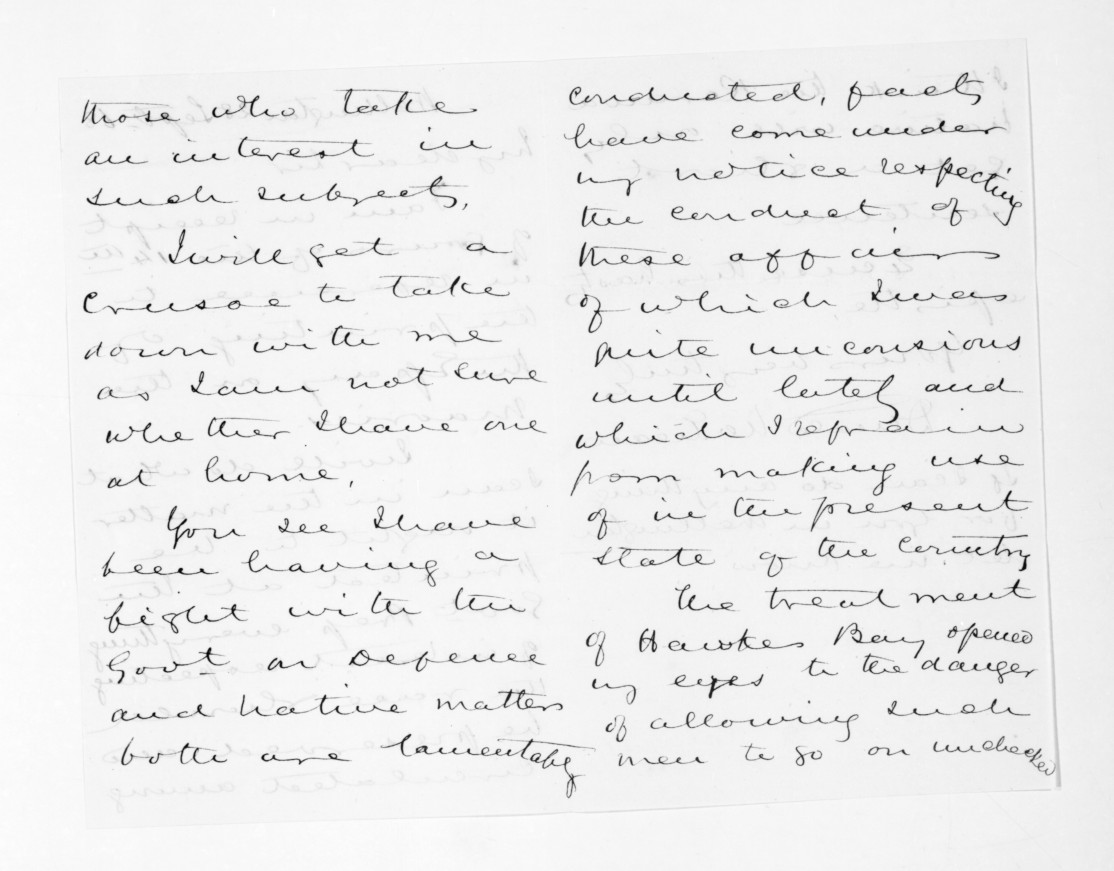 those who take
an interest in
such subjects,
I will get a
Crusoe to take
down with me
as I am not sure
whether I have one
at home,
You see I have
been having a
fight with the
Govt on Defence
and Native matters
both are lamentably
conducted, facts
have come under
my notice respecting
the conduct of
these affairs
of which I was
quite unconsious
until lately and
which I refrain
from making use
of in the present
state of the Country
The treatment
of Hawkes Bay opened
my eyes to the danger
of allowing such
men to go on unchecked